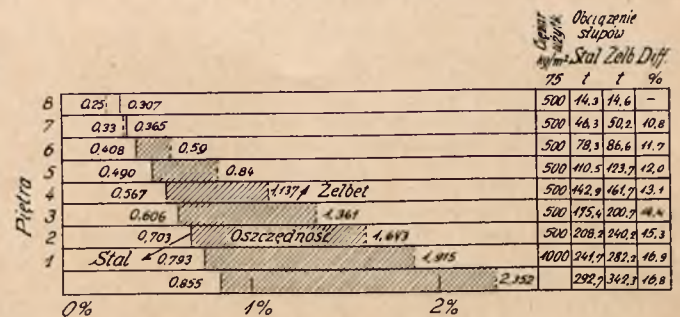 Ciężar użytk. Obciążenie słupów
kg/m² Stal Zelb Diff.
75 t t %
8 0.25 0.307 500 14.3 14.6 –
7 0.33 0.365 500 46,3 50,2 10,8
6 0.408 0.59 500 78,3 86,6 11.7
5 0.490 0.84 500 110.5 123.7 12,0
4 0.567 1.137 Żelbet 500 142.9 161.7 13.1
3 0.606 1.361 500 175,4 200.7
2 0.703 Oszczędność 1,643 500 208,2 240,2 15,3
1 Stal 0.793 1,915 1000 241,7 282,2 16,9
0.855 2.352 292,7 342,3 16,8
Piętra
0% 1% 2%